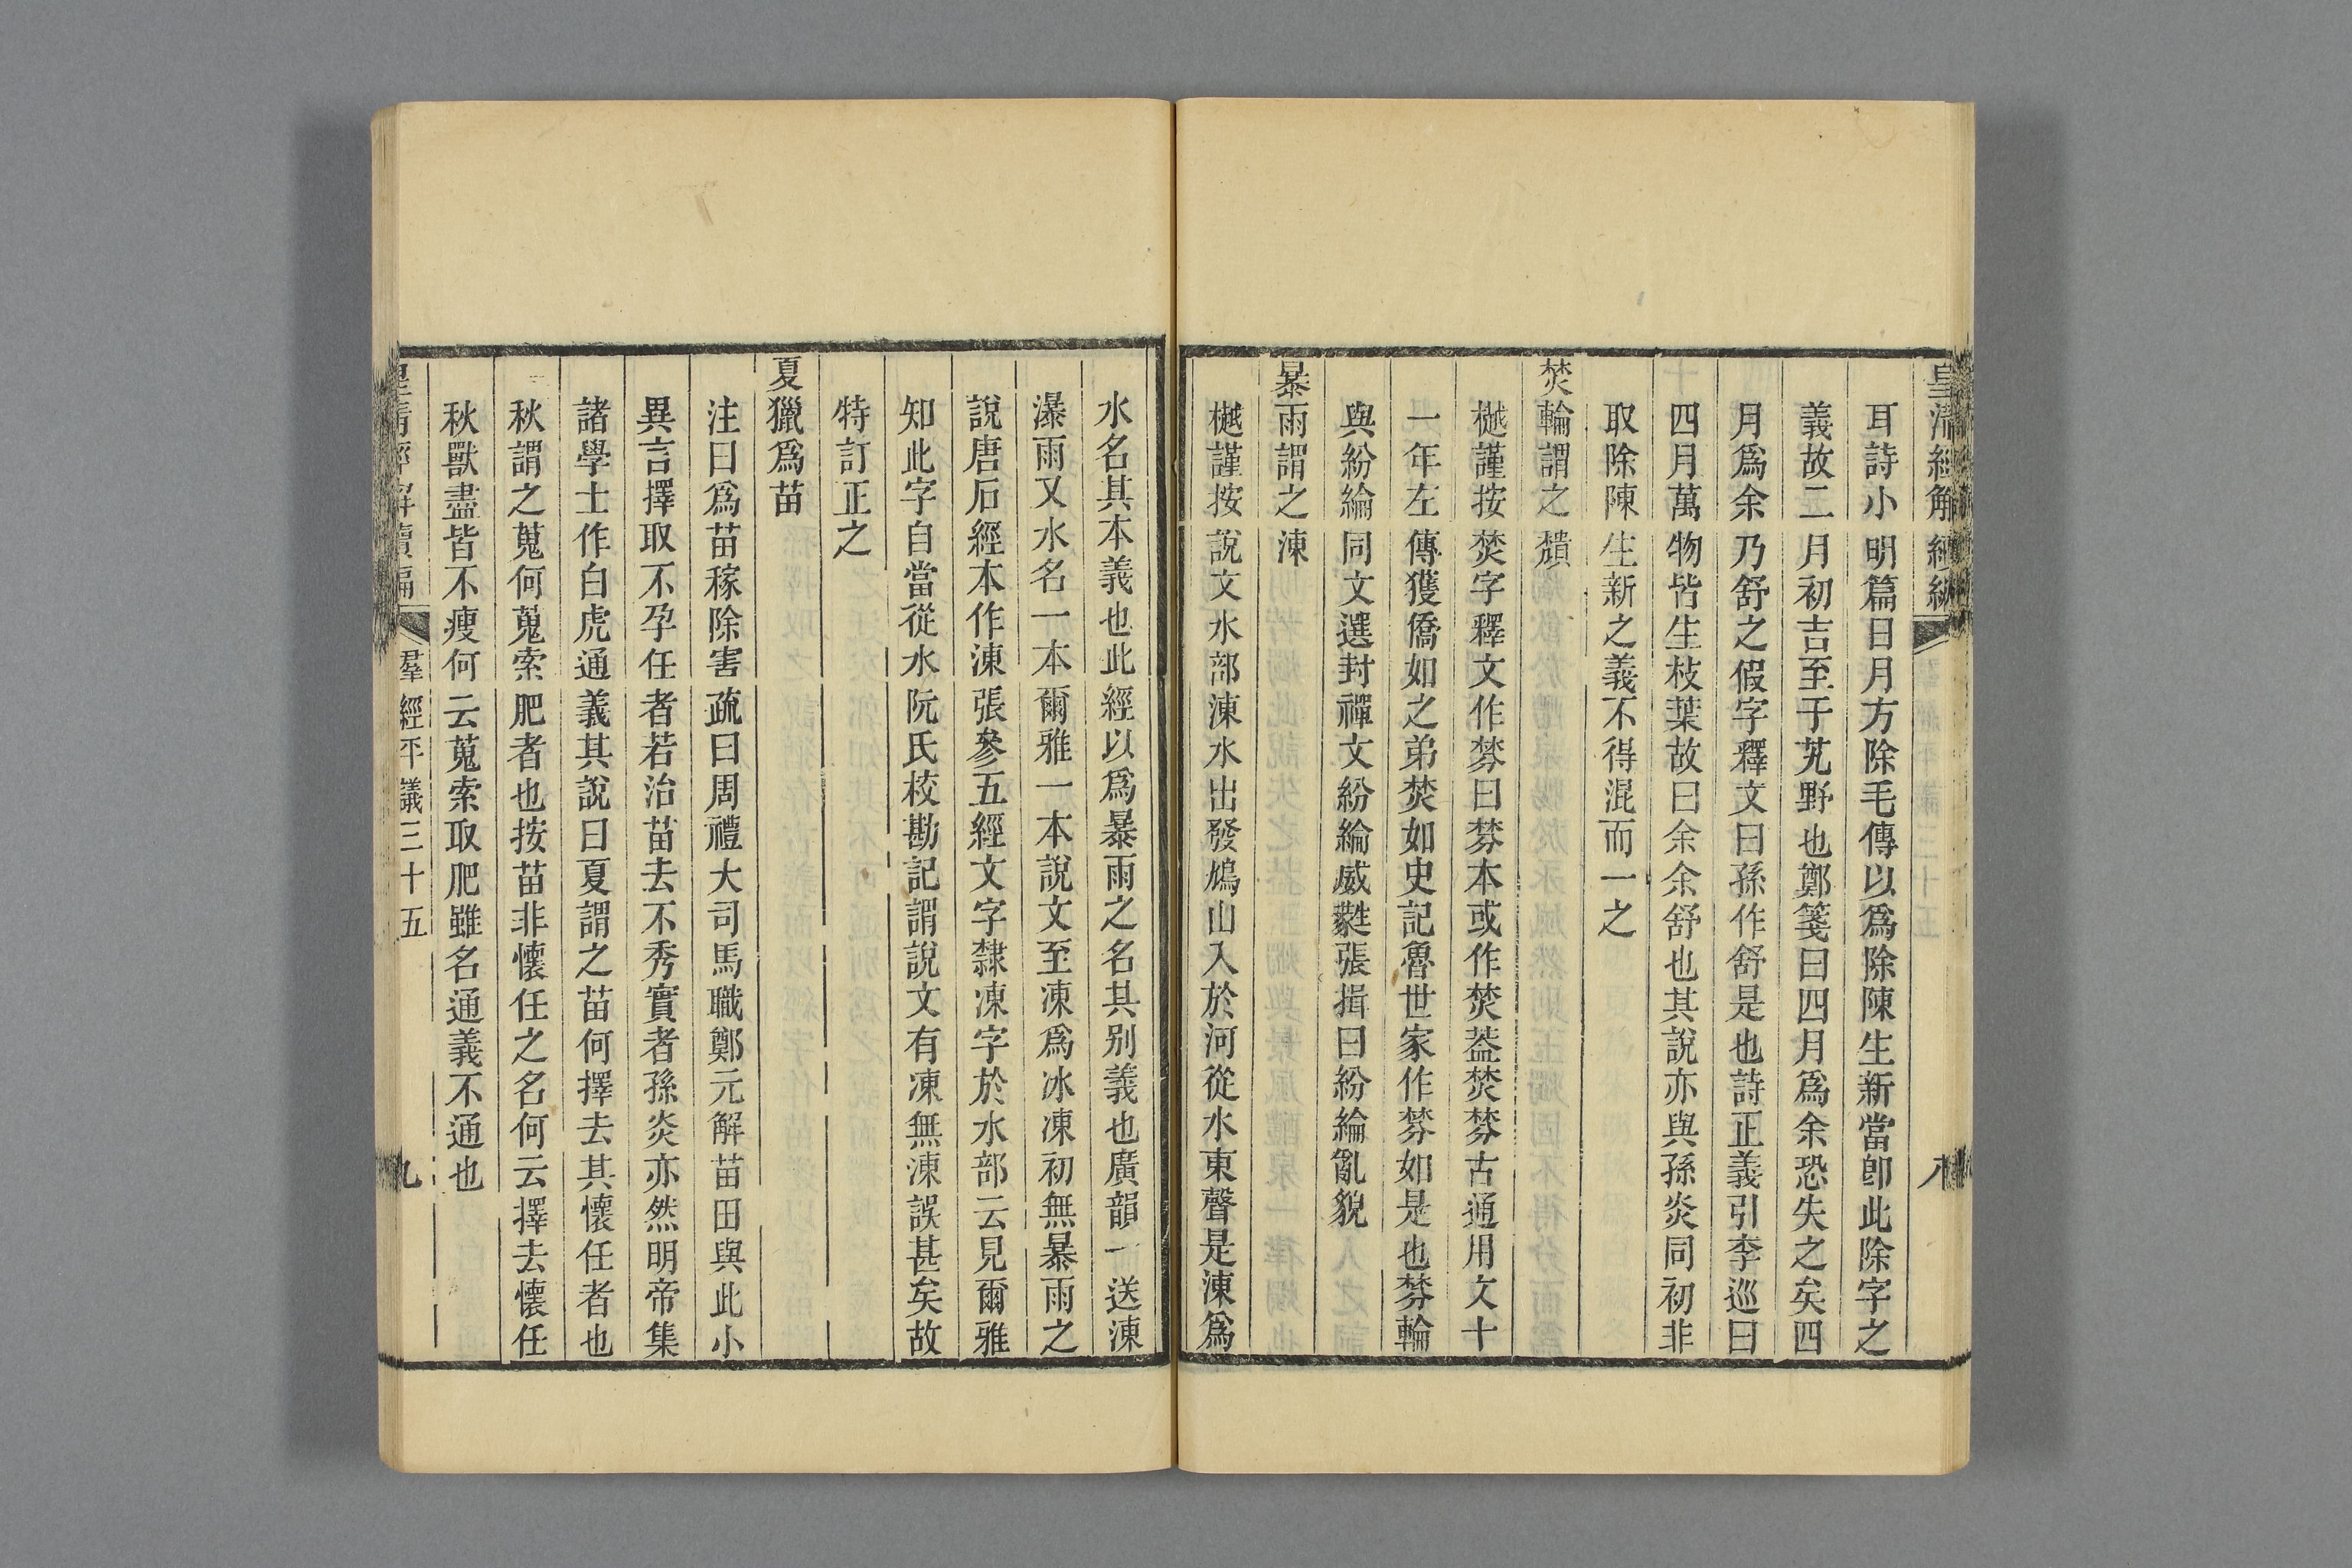 皇清經解續編
八
耳詩小明篇日月方除毛傳以爲除陳生新當卽此除字之
義故二月初吉至于艽野也鄭箋曰四月爲余恐失之矣四
月爲余乃舒之假字釋文曰孫作舒是也詩正義引李巡曰
四月萬物皆生枝葉故曰余余舒也其說亦與孫炎同初非
取除陳生新之義不得混而一之
焚輪謂之穨
樾謹按焚字釋文作棼曰棼本或作焚葢焚棼古通用文十
一年左傳獲僑如之弟焚如史記魯世家作棼如是也棼輪
與紛綸同文選封禪文紛綸威蕤張揖曰紛綸亂貌
暴雨謂之涷
樾謹按說文水部涷水出發鳩山入於河從水東聲是涷爲
水名其本義也此經以爲暴雨之名其别義也廣韻一送涷
瀑雨又水名一本爾雅一本說文至凍爲冰凍初無暴雨之
說唐石經本作涷張參五經文字隸凍字於水部云見爾雅
知此字自當從水阮氏校勘記謂說文有凍無涷誤甚矣故
特訂正之
夏獵爲苗
注曰爲苗稼除害疏曰周禮大司馬職鄭元解苗田與此小
異言擇取不孕任者若治苗去不秀實者孫炎亦然明帝集
諸學士作白虎通義其說曰夏謂之苗何擇去其懷任者也
秋謂之蒐何蒐索肥者也按苗非懷任之名何云擇去懷任
秋獸盡皆不瘦何云蒐索取肥雖名通義不通也
皇清經解續編
羣經平議三十五
九